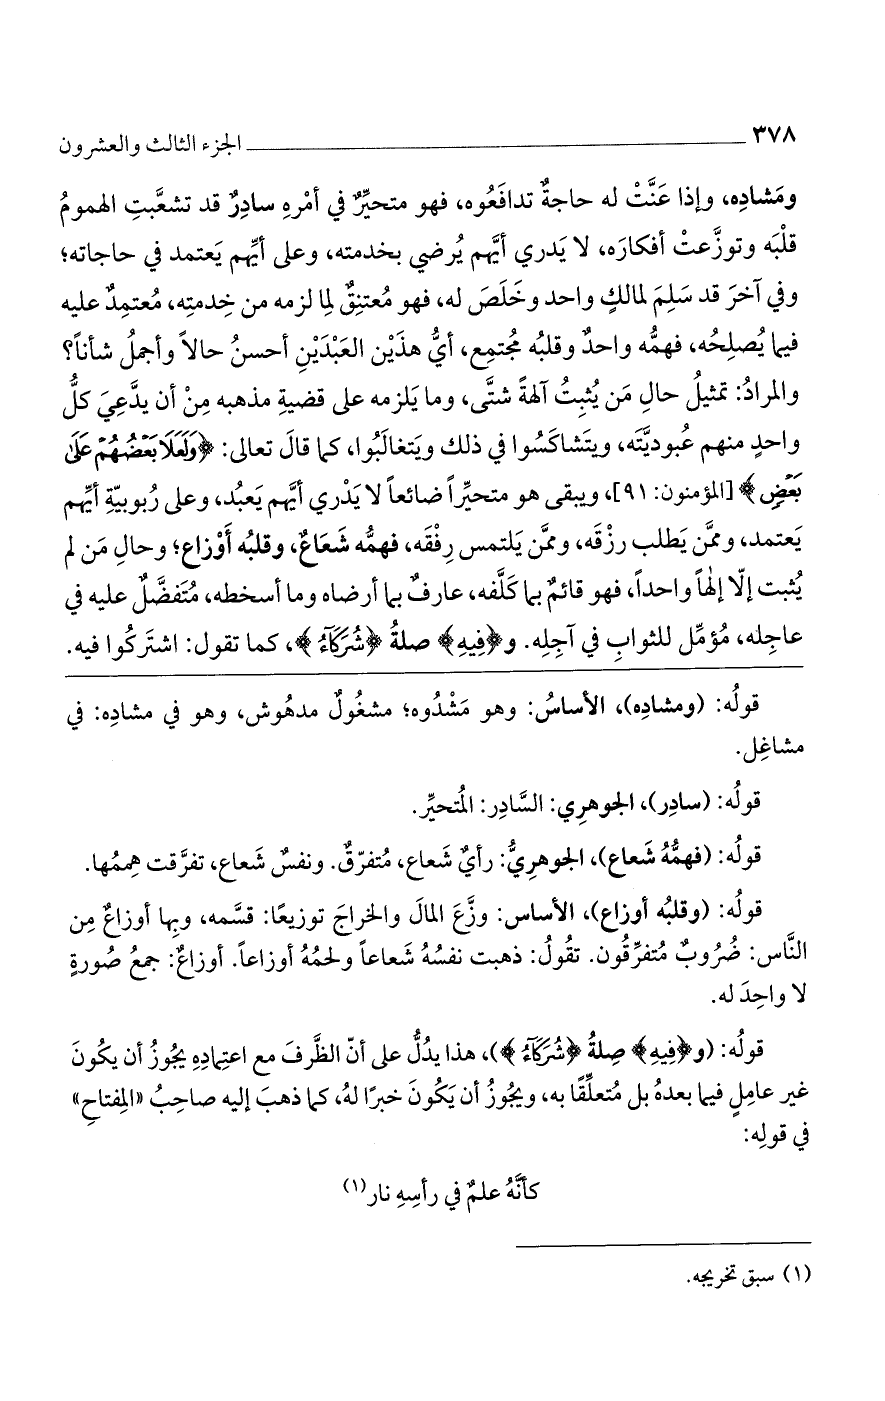 ٣٧٨ ــــــــــــــــــــــــــــــــــــــــ الجزء الثالث والعشرون
ومَشادِه، وإذا عَنَّتْ له حاجةٌ تدافَعُوه، فهو متحيِّرٌ في أمْرِه سادِرٌ قد تشعَّبتِ الهمومُ
قلْبَه وتوزَّعتْ أفكارَه، لا يَدري أيَّهم يُرضي بخدمته، وعلى أيِّهم يَعتمد في حاجاته؛
وفي آخرَ قد سَلِمَ لمالكٍ واحد وخَلَصَ له، فهو مُعتنِقٌ لِما لزمه من خِدمتِه، مُعتمِدٌ عليه
فيما يُصلِحُه، فهمُّه واحدٌ وقلبُه مجُتمِع، أيُّ هذَيْن العَبْدَيْنِ أحسنُ حالاً وأجملُ شأناً؟
والمرادُ: تمثيلُ حالِ مَن يُثبِتُ آلهةً شتَّى، وما يَلزمه على قضيةِ مذهبه مِنْ أن يدَّعِيَ كلُّ
واحدٍ منهم عُبوديَّتَه، ويتشاكَسُوا في ذلك ويَتغالَبُوا، كما قالَ تعالى: ﴿وَلَعَلَا بَعْضُهُمْ عَلَىٰ
بَعْضٍ﴾ [المؤمنون: ٩١]، ويبقى هو متحيِّراً ضائعاً لا يَدْري أيَّهم يَعبُد، وعلى رُبوبيّةِ أيِّهم
يَعتمد، وممَّن يَطلب رزْقَه، وممَّن يَلتمس رِفْقَه، فهمُّه شَعَاعٌ، وقلبُه أَوْزاع؛ وحالِ مَن لم
يُثبت إلّا إلٰهاً واحداً، فهو قائمٌ بما كَلَّفه، عارفٌ بما أرضاه وما أسخطه، مُتَفضَّلٌ عليه في
عاجِله، مُؤمِّل للثوابِ في آجِلِه. و﴿فِيهِ﴾ صلةُ ﴿شُرَكَآءُ﴾، كما تقول: اشتَركُوا فيه.
قولُه: (ومشادِه)، الأساسُ: وهو مَشْدُوه؛ مشغُولٌ مدهُوش، وهو في مشادِه: في
مشاغِل.
قولُه: (سادِر)، الجوهرِي: السَّادِر: المُتحيِّر.
قولُه: (فهمُّهُ شَعاع)، الجوهرِيُّ: رأيٌ شَعاع، مُتفرّقٌ. ونفسٌ شَعاع، تفرَّقت هِممُها.
قولُه: (وقلبُه أوزاع)، الأساس: وزَّعَ المالَ والخراجَ توزيعًا: قسَّمه، وبِها أوزاعٌ مِن
النَّاس: ضُرُوبٌ مُتفرِّقُون. تقُولُ: ذهبت نفسُهُ شَعاعاً ولحمُهُ أوزاعاً. أوزاعٌ: جمعُ صُورةٍ
لا واحِدَ له.
قولُه: (و﴿فِيهِ﴾ صِلةُ ﴿شُرَكَآءُ﴾)، هذا يدُلُّ على أنّ الظَّرفَ مع اعتِمادِهِ يجُوزُ أن يكُونَ
غير عامِلٍ فيما بعدهُ بل مُتعلِّقًا به، ويجُوزُ أن يَكُونَ خبرًا لهُ، كما ذهبَ إليه صاحِبُ «المِفتاحِ»
في قولِه:
كأنَّهُ علمٌ في رأسِهِ نار(١)
(١) سبق تخريجه.